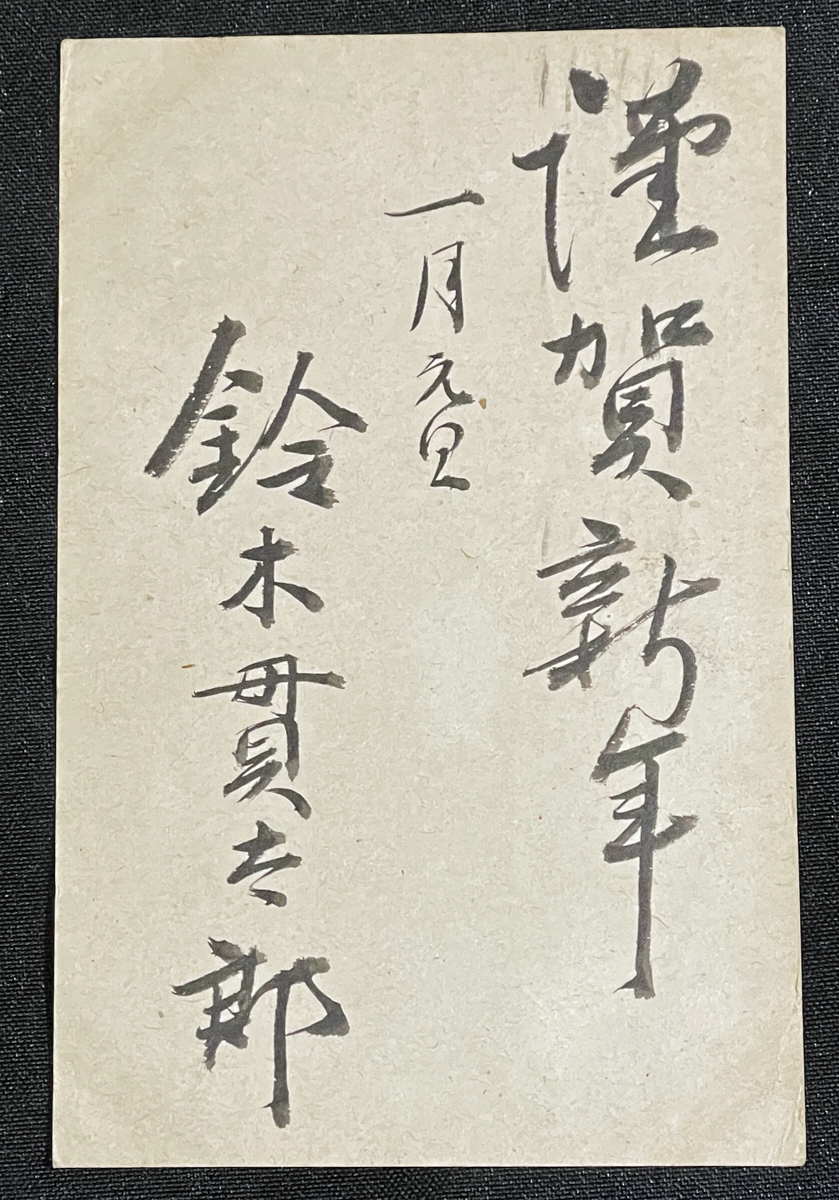 謹賀新年
一月元旦
鈴木貫太郎